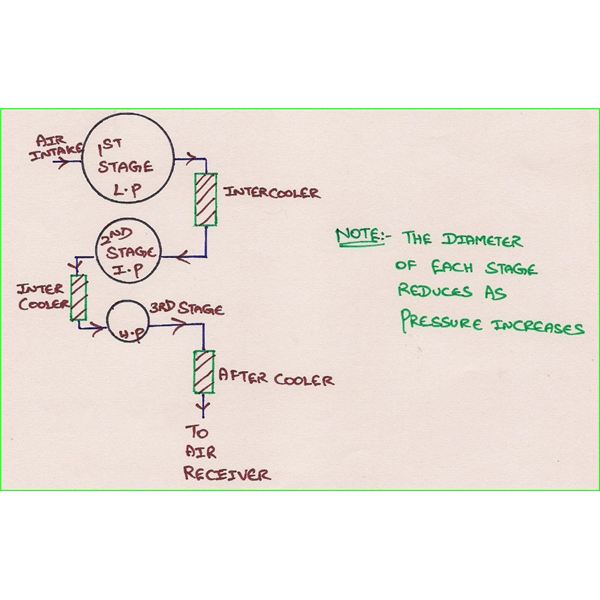 AIR
INTAKE
1ST
STAGE
L.P
INTERCOOLER
2ND
STAGE
I.P
INTER
COOLER
3RD STAGE
H.P
AFTER COOLER
TO
AIR
RECEIVER
NOTE:- THE DIAMETER
OF EACH STAGE
REDUCES AS
PRESSURE INCREASES